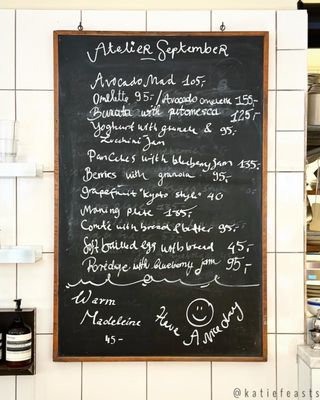 Atelier September
Avocado Mad 105,-
Omelette 95,-/Avocado omelette 155,-
Burrata with putanesca 125,-
Yoghurt with granola & 95,-
Zucchini Jam
Pancakes with blueberry jam 135,-
Berries with granola 95,-
Grapefruit "Kyoto style" 40
Morning plate 185,-
Comté with bread & butter 95,-
Soft boiled egg with bread 45,-
Poridge with blueberry jam 95,-
Warm
Madeleine
45-
Have A nice day
@katiefeasts